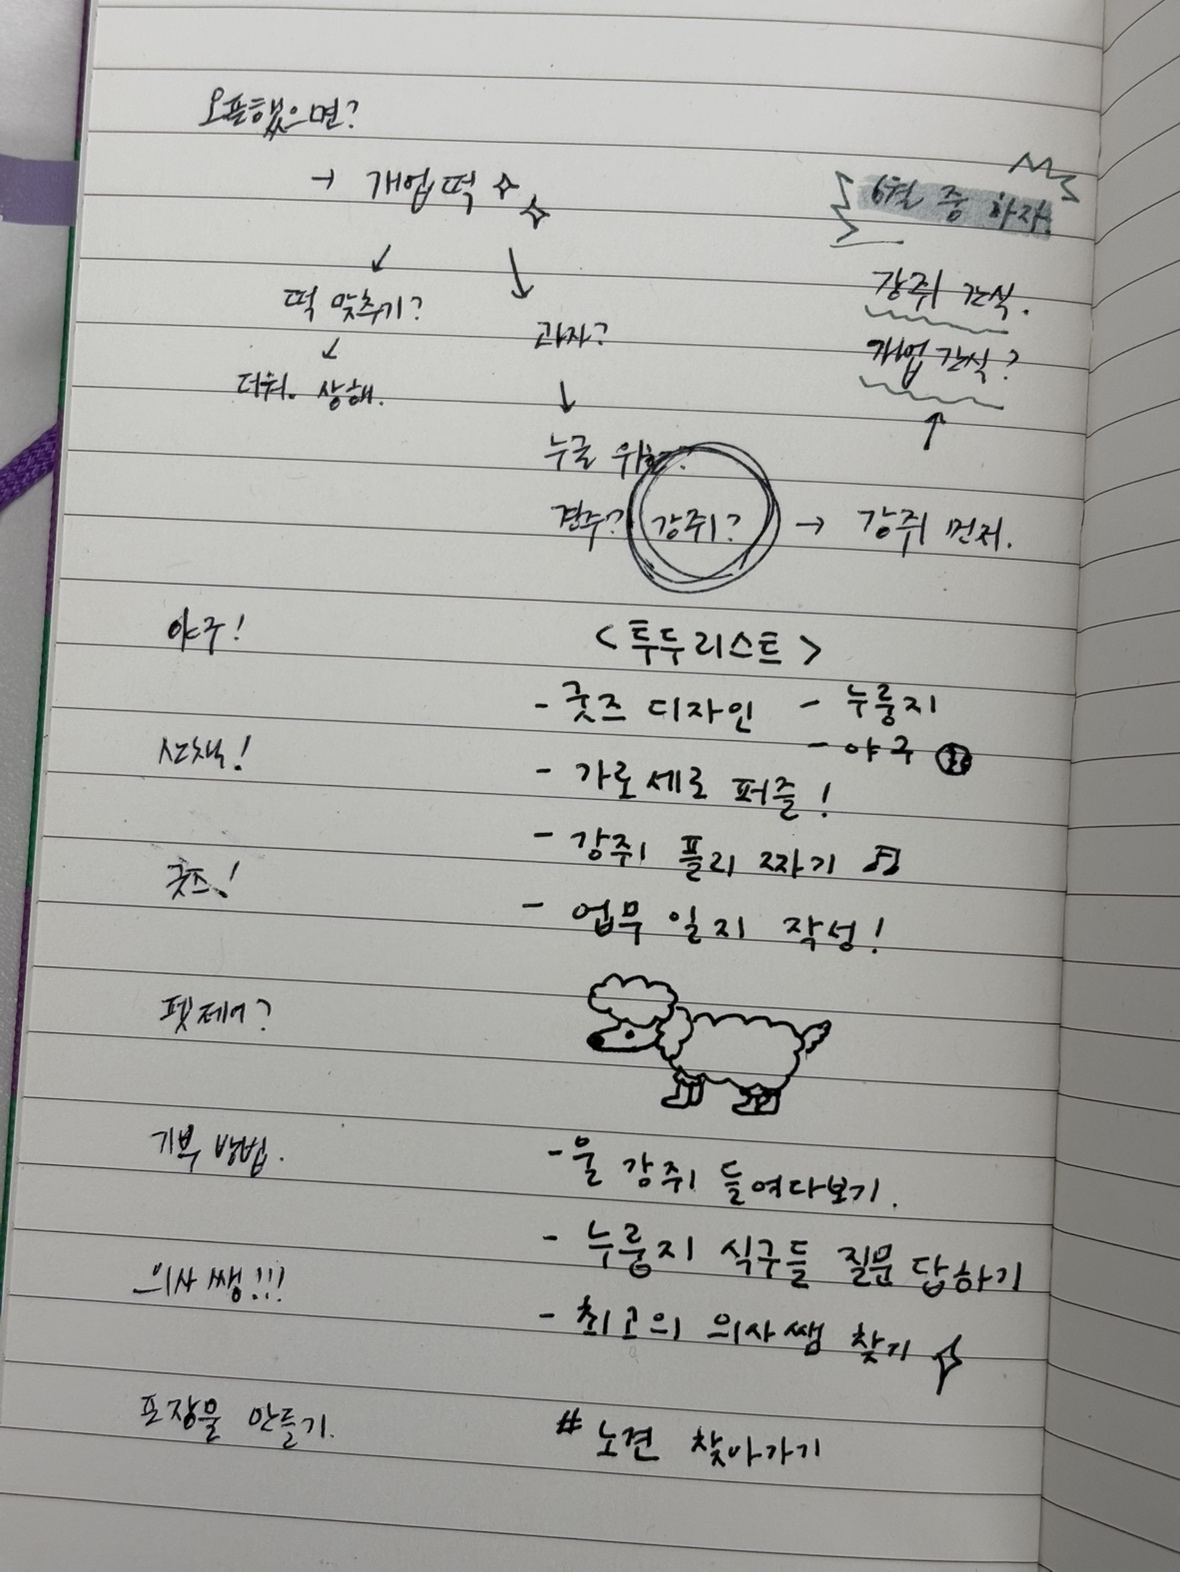 오픈했으면?
→ 개업떡
6월 중 하자.
떡 맞추기?
과자?
강쥐 간식.
더워. 상해.
개업 간식?
누굴 위한?
견주? 강쥐? → 강쥐 먼저.
야구!
<투두리스트>
- 굿즈 디자인 - 누룽지
- 야구
산책!
- 가로세로 퍼즐!
- 강쥐 플리 짜기 ♫
굿즈!
- 업무 일지 작성!
펫페어?
기부 방법.
- 울 강쥐 들여다보기.
- 누룽지 식구들 질문 답하기
의사쌤!!!
- 최고의 의사쌤 찾기
포장물 만들기.
# 노견 찾아가기